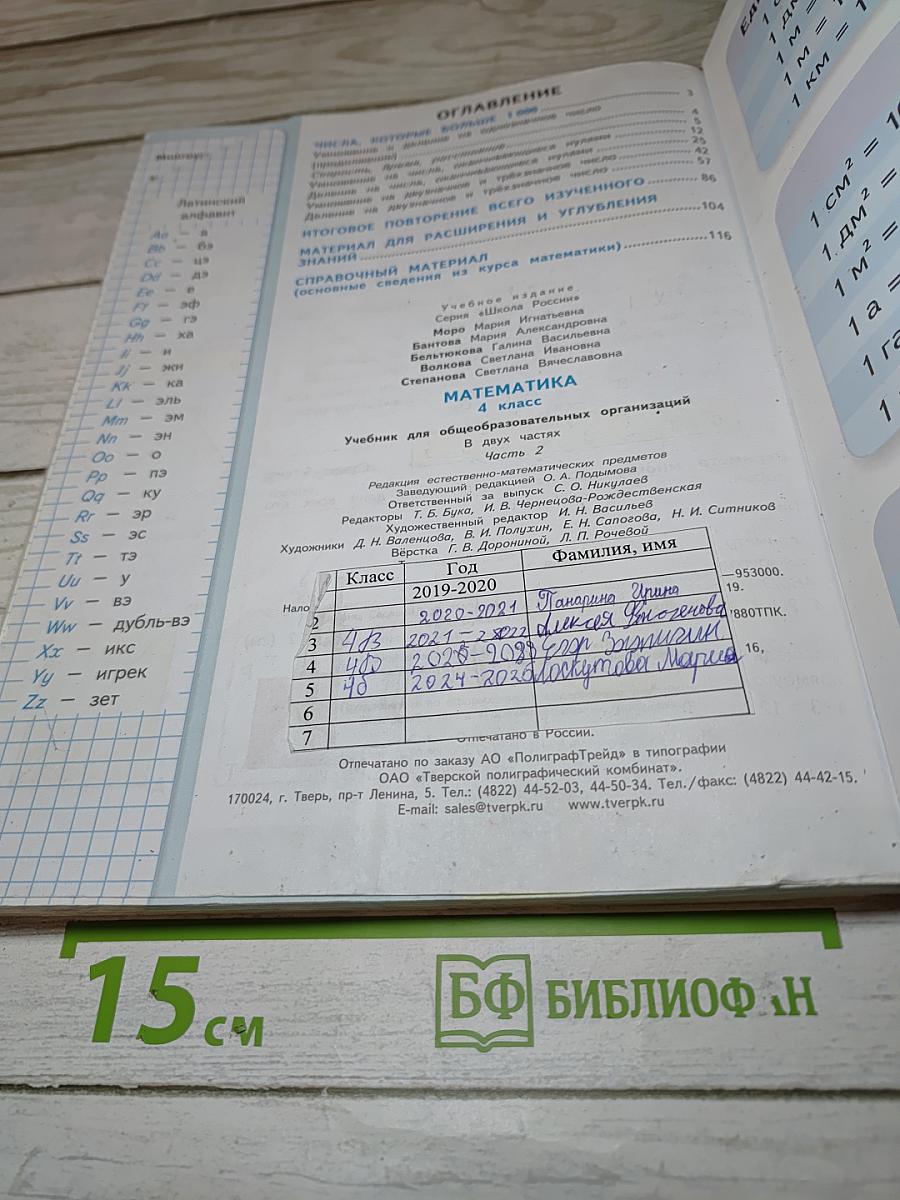 Латинский
алфавит
Aa — а
Bb — бэ
Cc — цэ
Dd — дэ
Ee — е
Ff — эф
Gg — гэ
Hh — ха
Ii — и
Jj — жи
Kk — ка
Ll — эль
Mm — эм
Nn — эн
Oo — о
Pp — пэ
Qq — ку
Rr — эр
Ss — эс
Tt — тэ
Uu — у
Vv — вэ
Ww — дубль-вэ
Xx — икс
Yy — игрек
Zz — зет
ОГЛАВЛЕНИЕ
ЧИСЛА, КОТОРЫЕ БОЛЬШЕ 1 000 3
Умножение и деление на однозначное число
(продолжение) 4
5
Умножение на числа, оканчивающиеся нулями 12
Деление на числа, оканчивающиеся нулями 25
Умножение на двузначное и трёхзначное число 42
Деление на двузначное и трёхзначное число 57
ИТОГОВОЕ ПОВТОРЕНИЕ ВСЕГО ИЗУЧЕННОГО 86
МАТЕРИАЛ ДЛЯ РАСШИРЕНИЯ И УГЛУБЛЕНИЯ
ЗНАНИЙ 104
СПРАВОЧНЫЙ МАТЕРИАЛ
(основные сведения из курса математики) 116
Учебное издание
Серия «Школа России»
Моро Мария Игнатьевна
Бантова Мария Александровна
Бельтюкова Галина Васильевна
Волкова Светлана Ивановна
Степанова Светлана Вячеславовна
МАТЕМАТИКА
4 класс
Учебник для общеобразовательных организаций
В двух частях
Часть 2
Редакция естественно-математических предметов
Заведующий редакцией О. А. Подымова
Ответственный за выпуск С. О. Никулаев
Редакторы Т. Б. Бука, И. В. Чернецова-Рождественская
Художественный редактор И. Н. Васильев
Художники Д. Н. Валенцова, В. И. Полухин, Е. Н. Сапогова, Н. И. Ситников
Вёрстка Г. В. Дорониной, Л. П. Рочевой
Класс Год Фамилия, имя
2019-2020
Нало —953000.
2 2020-2021 Панарина Ирина 19.
3 4В 2021-2022 Алексея 880ТПК.
4 4б Егор
5 4б Лоскутова Мария 16,
6
7
Отпечатано в России.
Отпечатано по заказу АО «ПолиграфТрейд» в типографии
ОАО «Тверской полиграфический комбинат».
170024, г. Тверь, пр-т Ленина, 5. Тел.: (4822) 44-52-03, 44-50-34. Тел./факс: (4822) 44-42-15.
E-mail: sales@tverpk.ru www.tverpk.ru
1 м =
1 м =
1 км =
1 см² =
1 дм² =
1 м² =
1 а =
1 га
1
15 см
БФ БИБЛИОФ